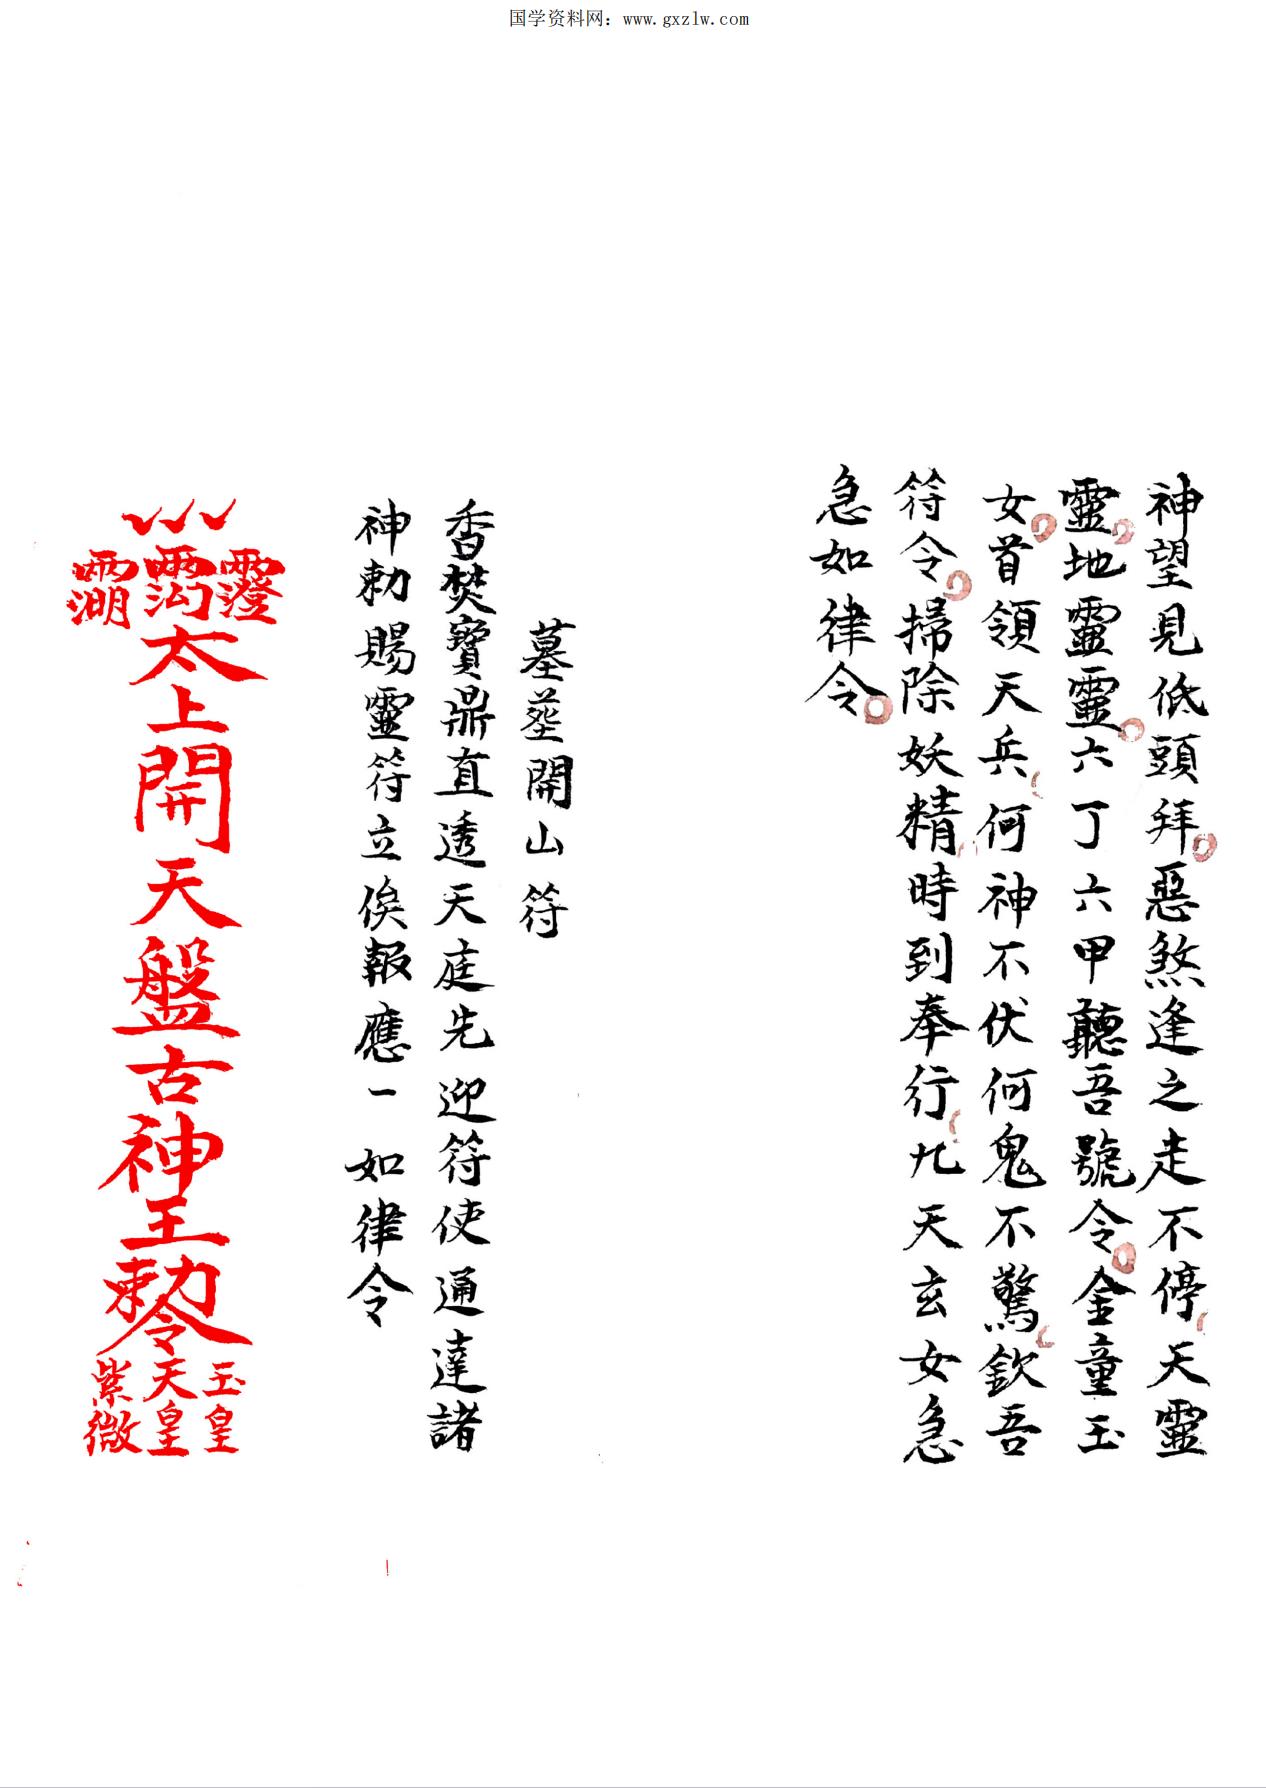 国学资料网：www.gxzlw.com
神望見低頭拜惡煞逢之走不停天靈
靈地靈靈六丁六甲聽吾號令金童玉
女首領天兵何神不伏何鬼不驚欽吾
符令掃除妖精時到奉行九天玄女急
急如律令
墓塋開山符
香焚寶鼎直透天庭先迎符使通達諸
神勅賜靈符立俟報應一如律令
太上開天盤古神王勅令
玉皇
天皇
紫微